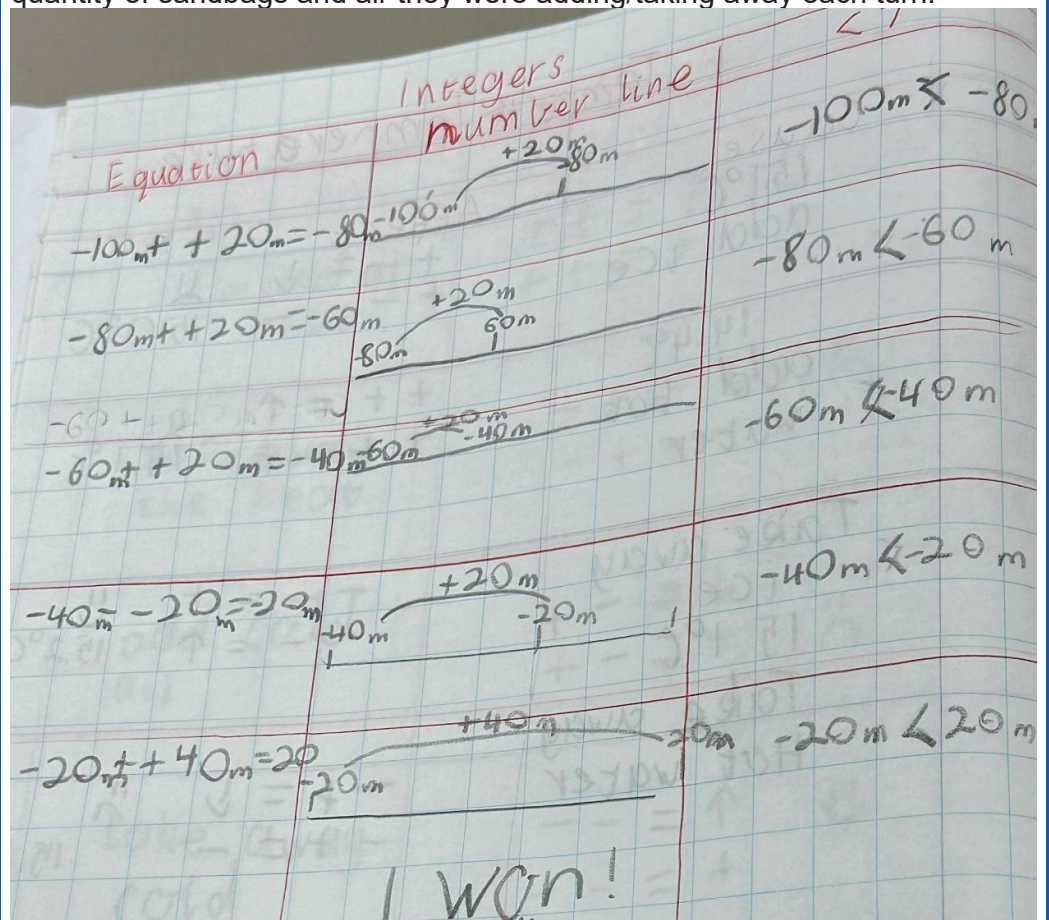 quantity of sandbags and air they were adding/taking away each turn.
< 1
Integers
Equation number line
-100m + +20m = -80m -100m +20m -80m -100m < -80
-80m + +20m = -60m -80m +20m 60m -80m < -60m
-60 +
-60m + +20m = -40m -60m +20m -40m -60m < -40m
-40m - -20m = -20m -40m +20m -20m -40m < -20m
-20m + +40m = 20 -20m +40m 20m -20m < 20m
I won!